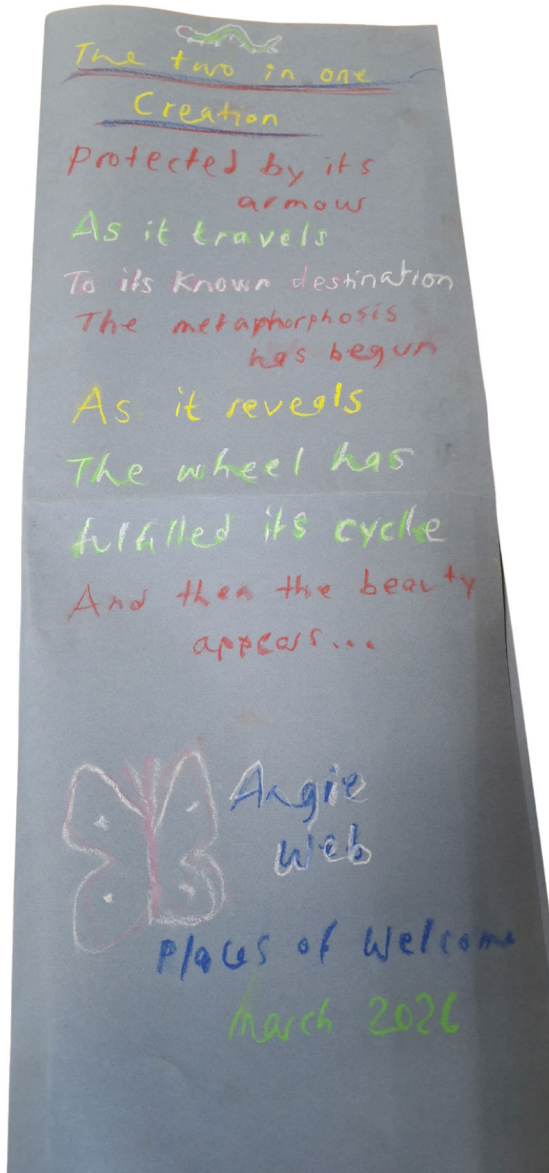 The two in one
Creation
Protected by its
armour
As it travels
To its known destination
The metaphorphosis
has begun
As it reveals
The wheel has
fulfilled its cycle
And then the beauty
appears...
Angie
Web
Places of Welcome
March 2026